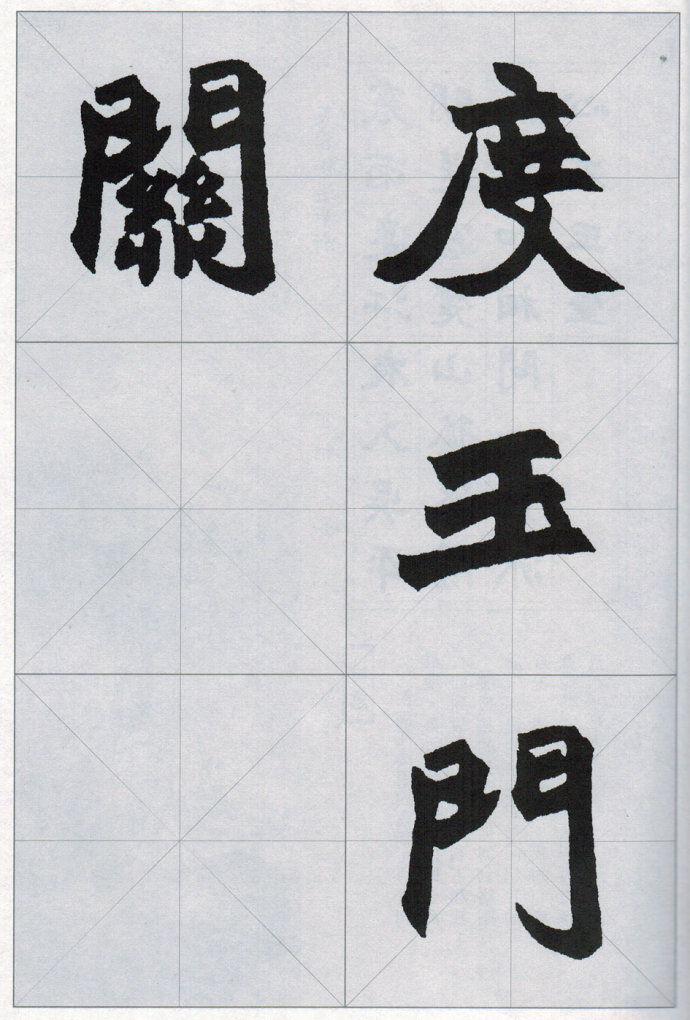 度玉門
關